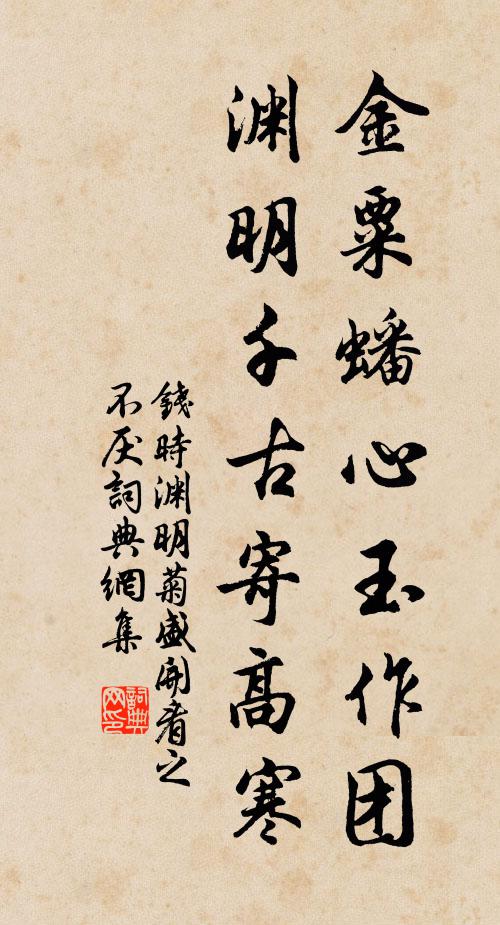 金粟蟠心玉作团
渊明千古寄高寒
錢時渊明菊盛開看之
不厌詞典網集
詞典网印